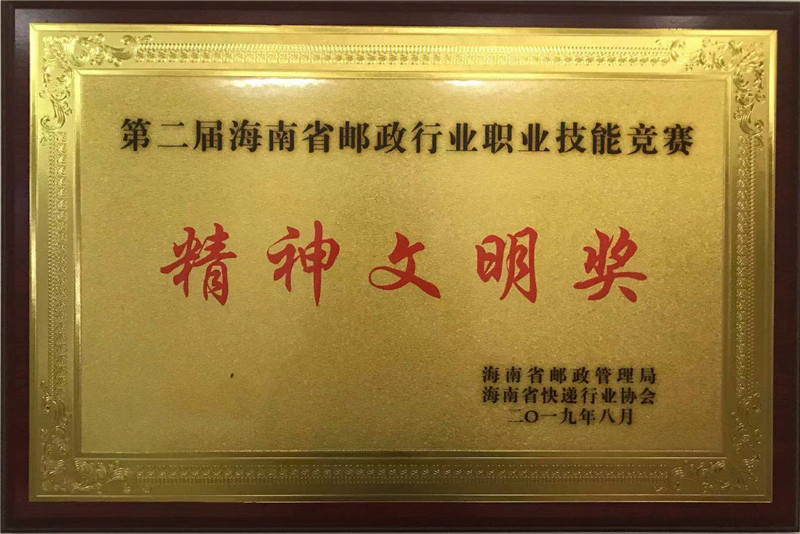 第二届海南省邮政行业职业技能竞赛
精神文明奖
海南省邮政管理局
海南省快递行业协会
二〇一九年八月